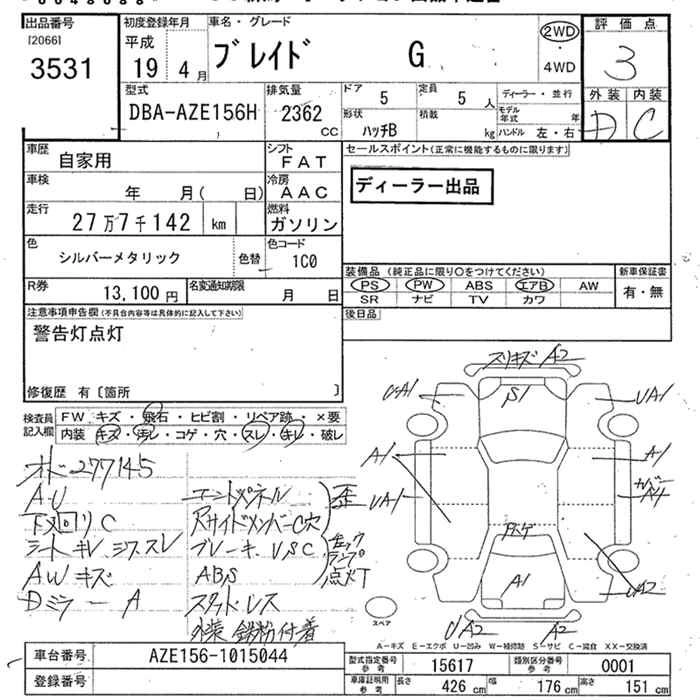 出品番号
[2066]
3531
初度登録年月
平成
19 4月
車名・グレード
ブレイド G
2WD
・
4WD
評価点
3
外装 内装
D C
型式
DBA-AZE156H
排気量
2362
CC
ドア
5
定員
5 人
ディーラー・並行
形状
ハッチB
積載
kg
モデル年式 年
ハンドル 左・右
車歴
自家用
シフト
FAT
車検
年 月( 日)
冷房
AAC
走行
27万7千142 km
燃料
ガソリン
色
シルバーメタリック
色替
色コード
1C0
R券
13,100円
名変通知期限
月 日
セールスポイント(正常に機能するものに限ります)
ディーラー出品
装備品 (純正品に限り○をつけてください)
PS PW ABS エアB AW
SR ナビ TV カワ
新車保証書
有・無
後日品
注意事項申告欄(不具合内容等は具体的に記入して下さい)
警告灯点灯
修復歴 有〔箇所 〕
検査員
記入欄
FW キズ・飛石・ヒビ割・リペア跡・×要
内装 キズ・汚レ・コゲ・穴・スレ・キレ・破レ
オド277145
AU
下廻りC
シート キレ シワ スレ
AWキズ
Dミラー A
エンドパネル
Rサイドメンバー C穴
歪
ブレーキ. VSC
ABS
チェックランプ点灯
スタッドレス
外装 鉄粉付着
スリキズ A2
UA1
S1
UA1
A1
A1
UA1
カバーA4
A1
UA2
UA2
A2
スペア
A-キズ E-エクボ U-凹み W-補修跡 S-サビ C-腐食 XX-交換済
車台番号
AZE156-1015044
登録番号
型式指定番号
参考
15617
類別区分番号
参考
0001
車庫証明用
参考
長さ
426 cm
幅
176 cm
高さ
151 cm